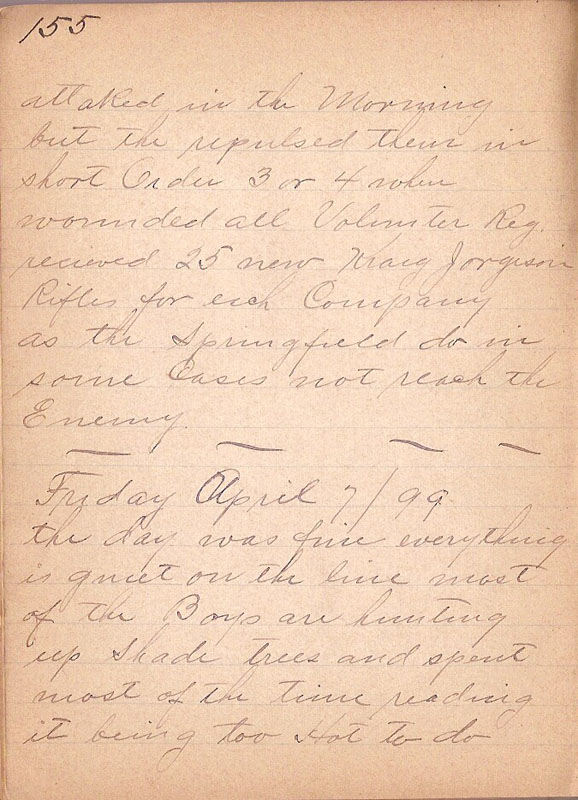 155
attaked in the Morning
but the repulsed them in
short Order 3 or 4 wher
wounded all Volunter Reg.
recieved 25 new Kraig Jorgison
Rifles for each Company
as the Springfield do in
some Cases not reach the
Enemy.
Friday April 7/99
the day was fine everything
is quiet on the line most
of the Boys are hunting
up Shade trees and spent
most of the time reading
it being too Hot to do